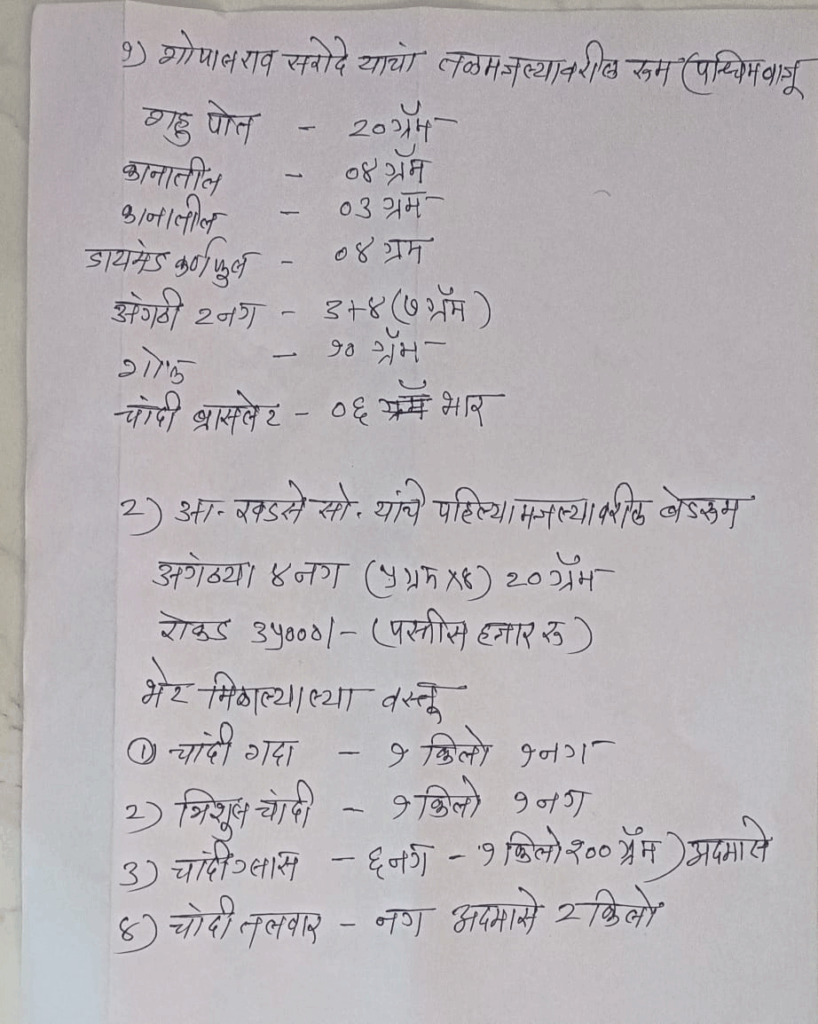 १) गोपालराव सरोदे यांचा तळमजल्यावरील रूम (पश्चिम बाजू
शहु पोत - २० ग्रॅम
कानातील - ०४ ग्रॅम
कानातील - ०३ ग्रम
डायमंड कर्णफुल - ०४ ग्रम
अंगठी २ नग - ३+४ (७ ग्रॅम)
गोफ - १० ग्रॅम
चांदी ब्रासलेट - ०६ भार
२) आ. खडसे सो. यांचे पहिल्या मजल्यावरील बेडरूम
अगंठया ४ नग (५ ग्रम x४) २० ग्रॅम
रोकड ३५०००/- (पस्तीस हजार रु)
भेट मिळाल्याल्या वस्तू
① चांदी गदा - १ किलो १ नग
२) त्रिशूल चांदी - १ किलो १ नग
३) चांदी ग्लास - ६ नग - १ किलो २०० ग्रॅम) अदमासे
४) चांदी तलवार - नग अदमासे २ किलो